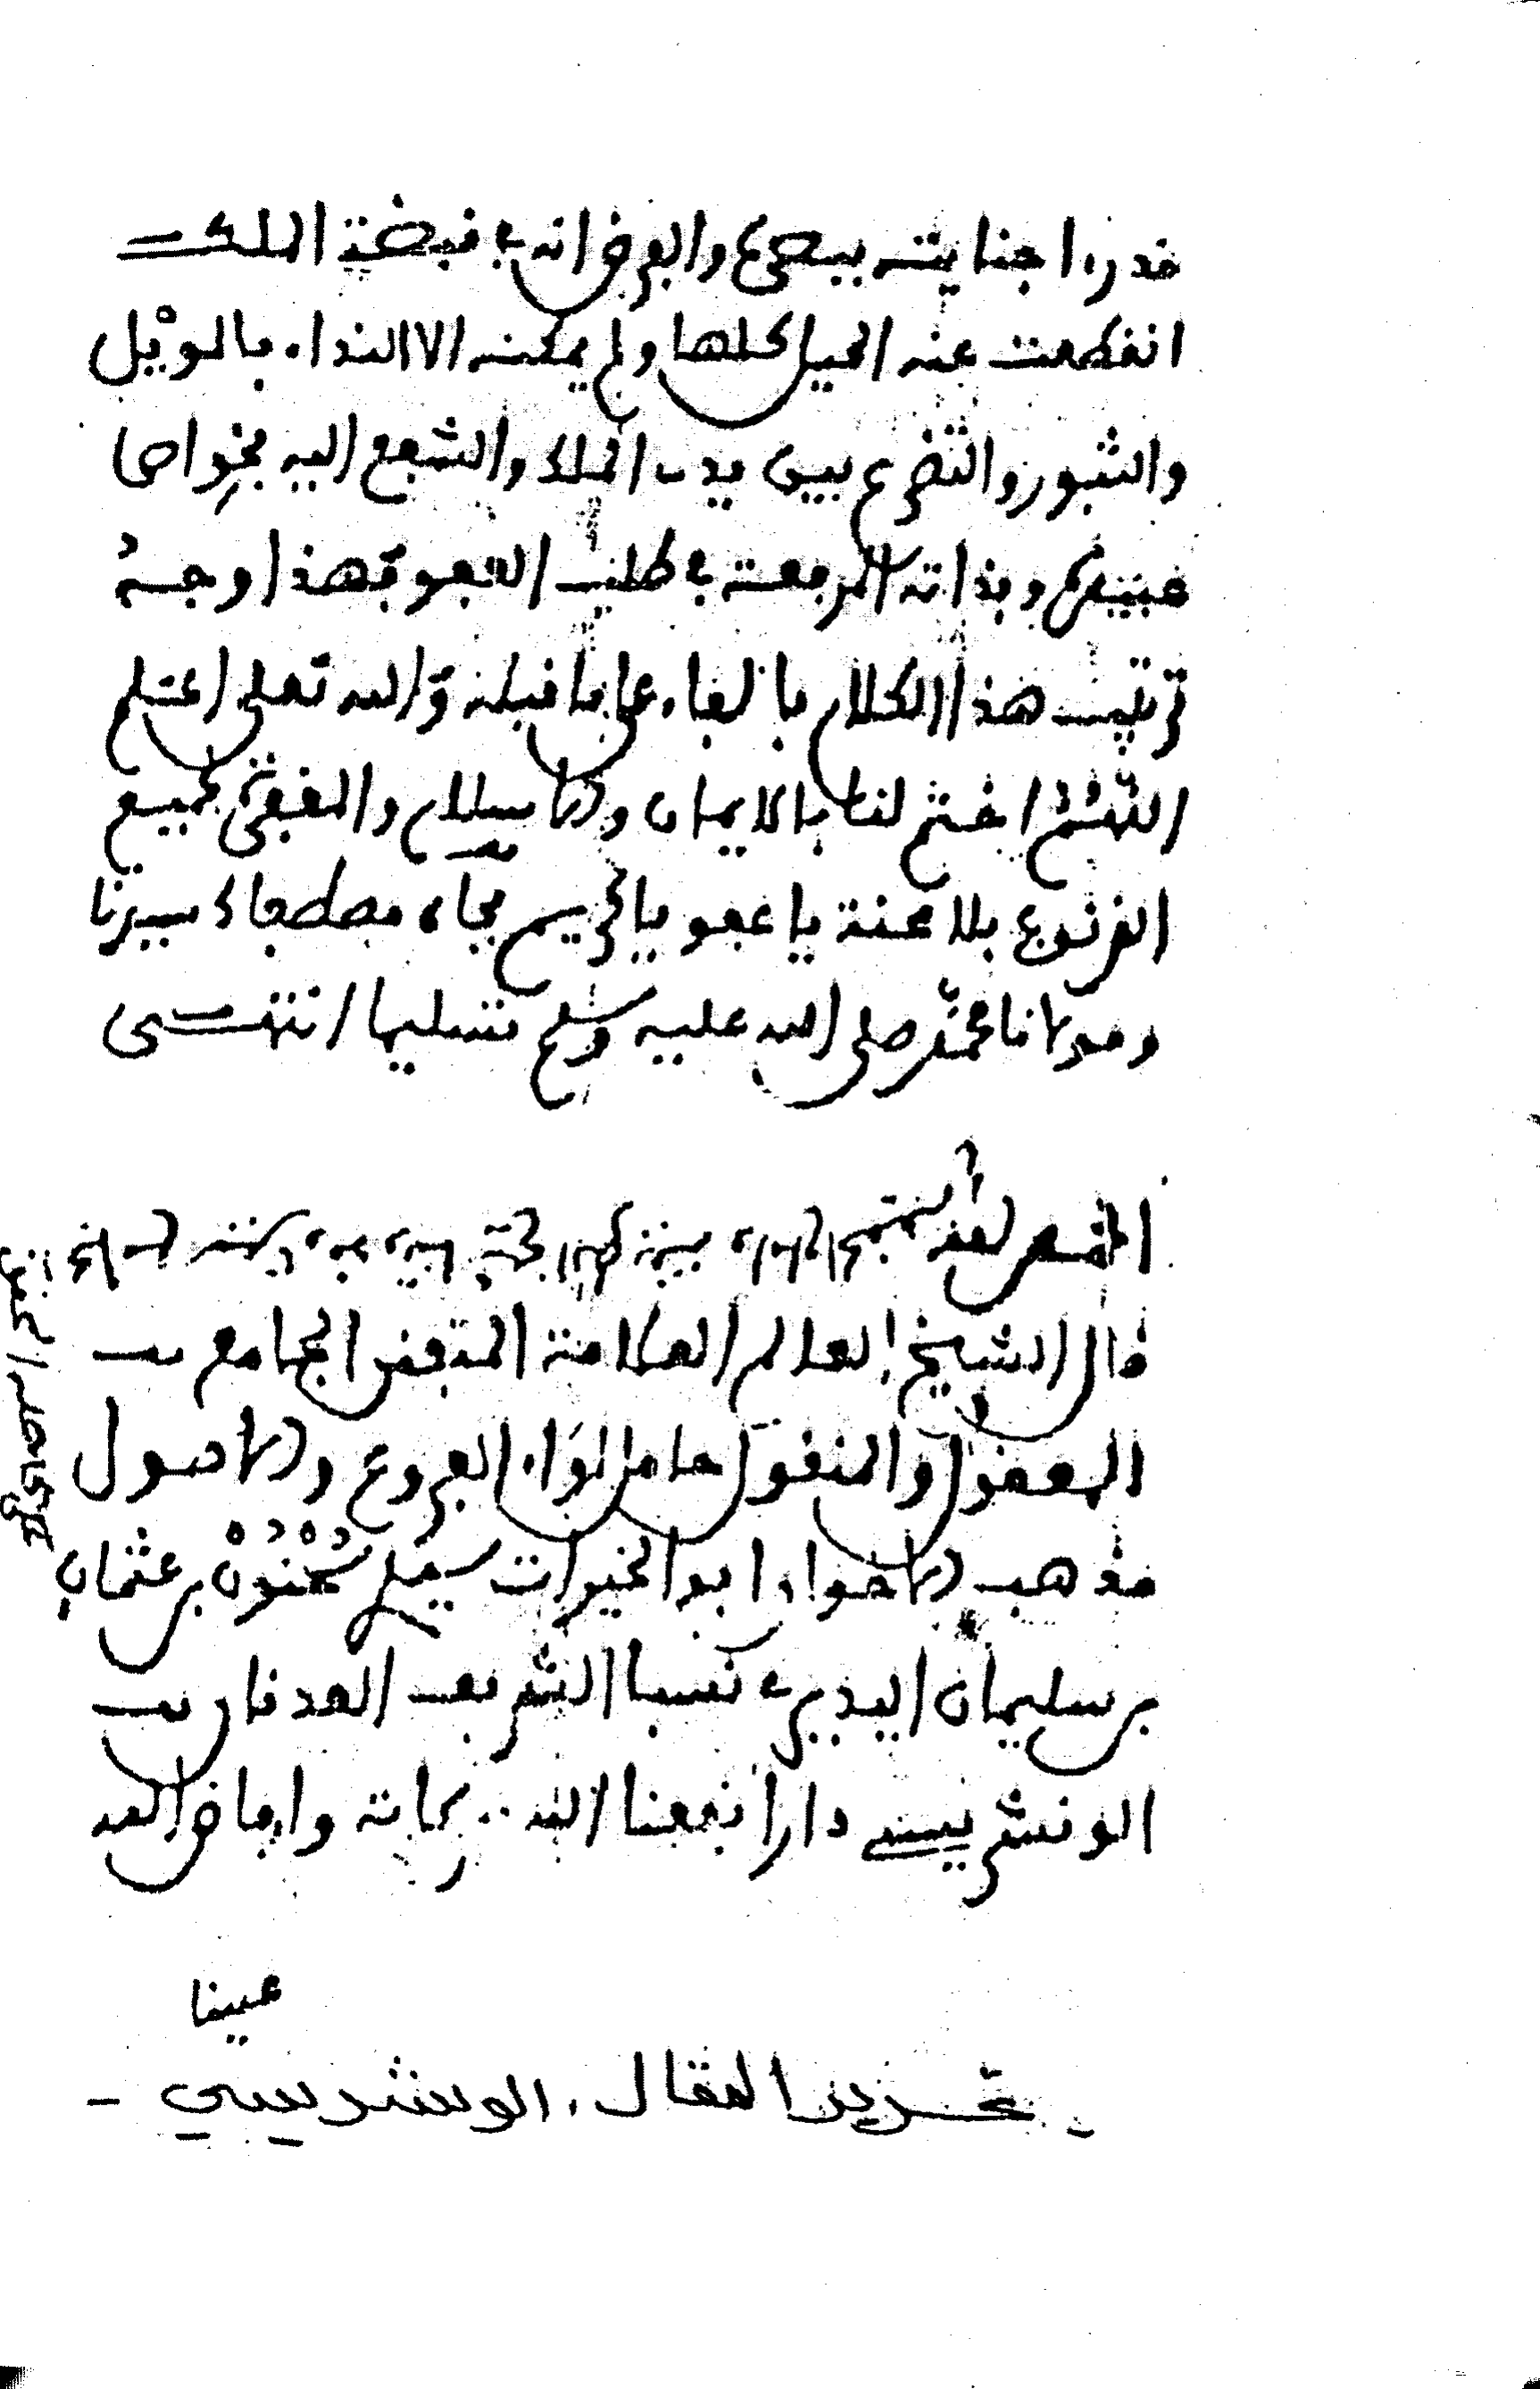 قدر اجنايته بيحيى والفرض انه في قبضة الملك
انقطعت عنه الحيل كلها ولم يمكنه الا النداء بالويل
والثبور والتضرع بين يدي الملك والتشفع اليه بخواص
عبيده وبذاته المرفعة في طلب العفو فهذا وجه
ترتيب هذا الكلام بالفاء على ما قبله والله تعلى اعلم
اللهم اختم لنا بالايمان والاسلام والمغفرة لجميع
بلا محنة يا عفو يا كريم بجاه مصطفاك سيدنا
ومولانا محمد صلى الله عليه وسلم تسليما انتهى
الحمد لله
قال الشيخ العالم العلامة المتفنن الجامع بين
المعقول والمنقول حامل لواء الفروع والاصول
مذهب الاضواء ابو الخيرات سيدي سُحْنُونْ بن عثمان
بن سليمان اليديري نسبا الشريف
الونشريسي دارا نفعنا الله ببركاته وافاض الله
عينا
تحرير المقال، الونشريسي -